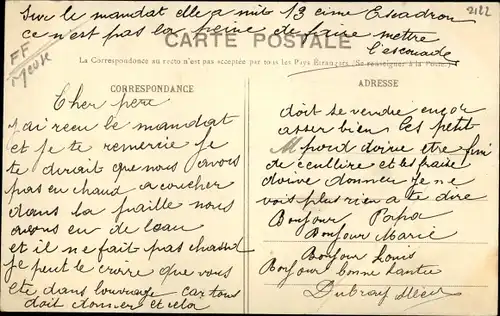 Sur le mandat elle a mit 13 eime Escadron
ce n'est pas la peine de faire mettre
l'escouade
2122
FF
CARTE POSTALE
La Correspondance au recto n'est pas acceptée par tous les Pays Étrangers (Se renseigner à la Poste.)
CORRESPONDANCE
Cher pere
j'ai recu le mandat
et je te remercie je
te dirait que nous avons
pas eu chaud a coucher
dans la paille nous
avons eu de l'eau
et il ne fait pas chaud
je peut le croire que vous
ete dans l'ouvrage car tous
doit donner et cela
ADRESSE
doit se vendre encore
asser bien les petit
pois doive etre fini
de ceullire et les fraise
doive donner je ne
vois plus rien a te dire
Bonjour Papa
Bonjour Marie
Bonjour Louis
Bonjour bonne Santee
Dubray